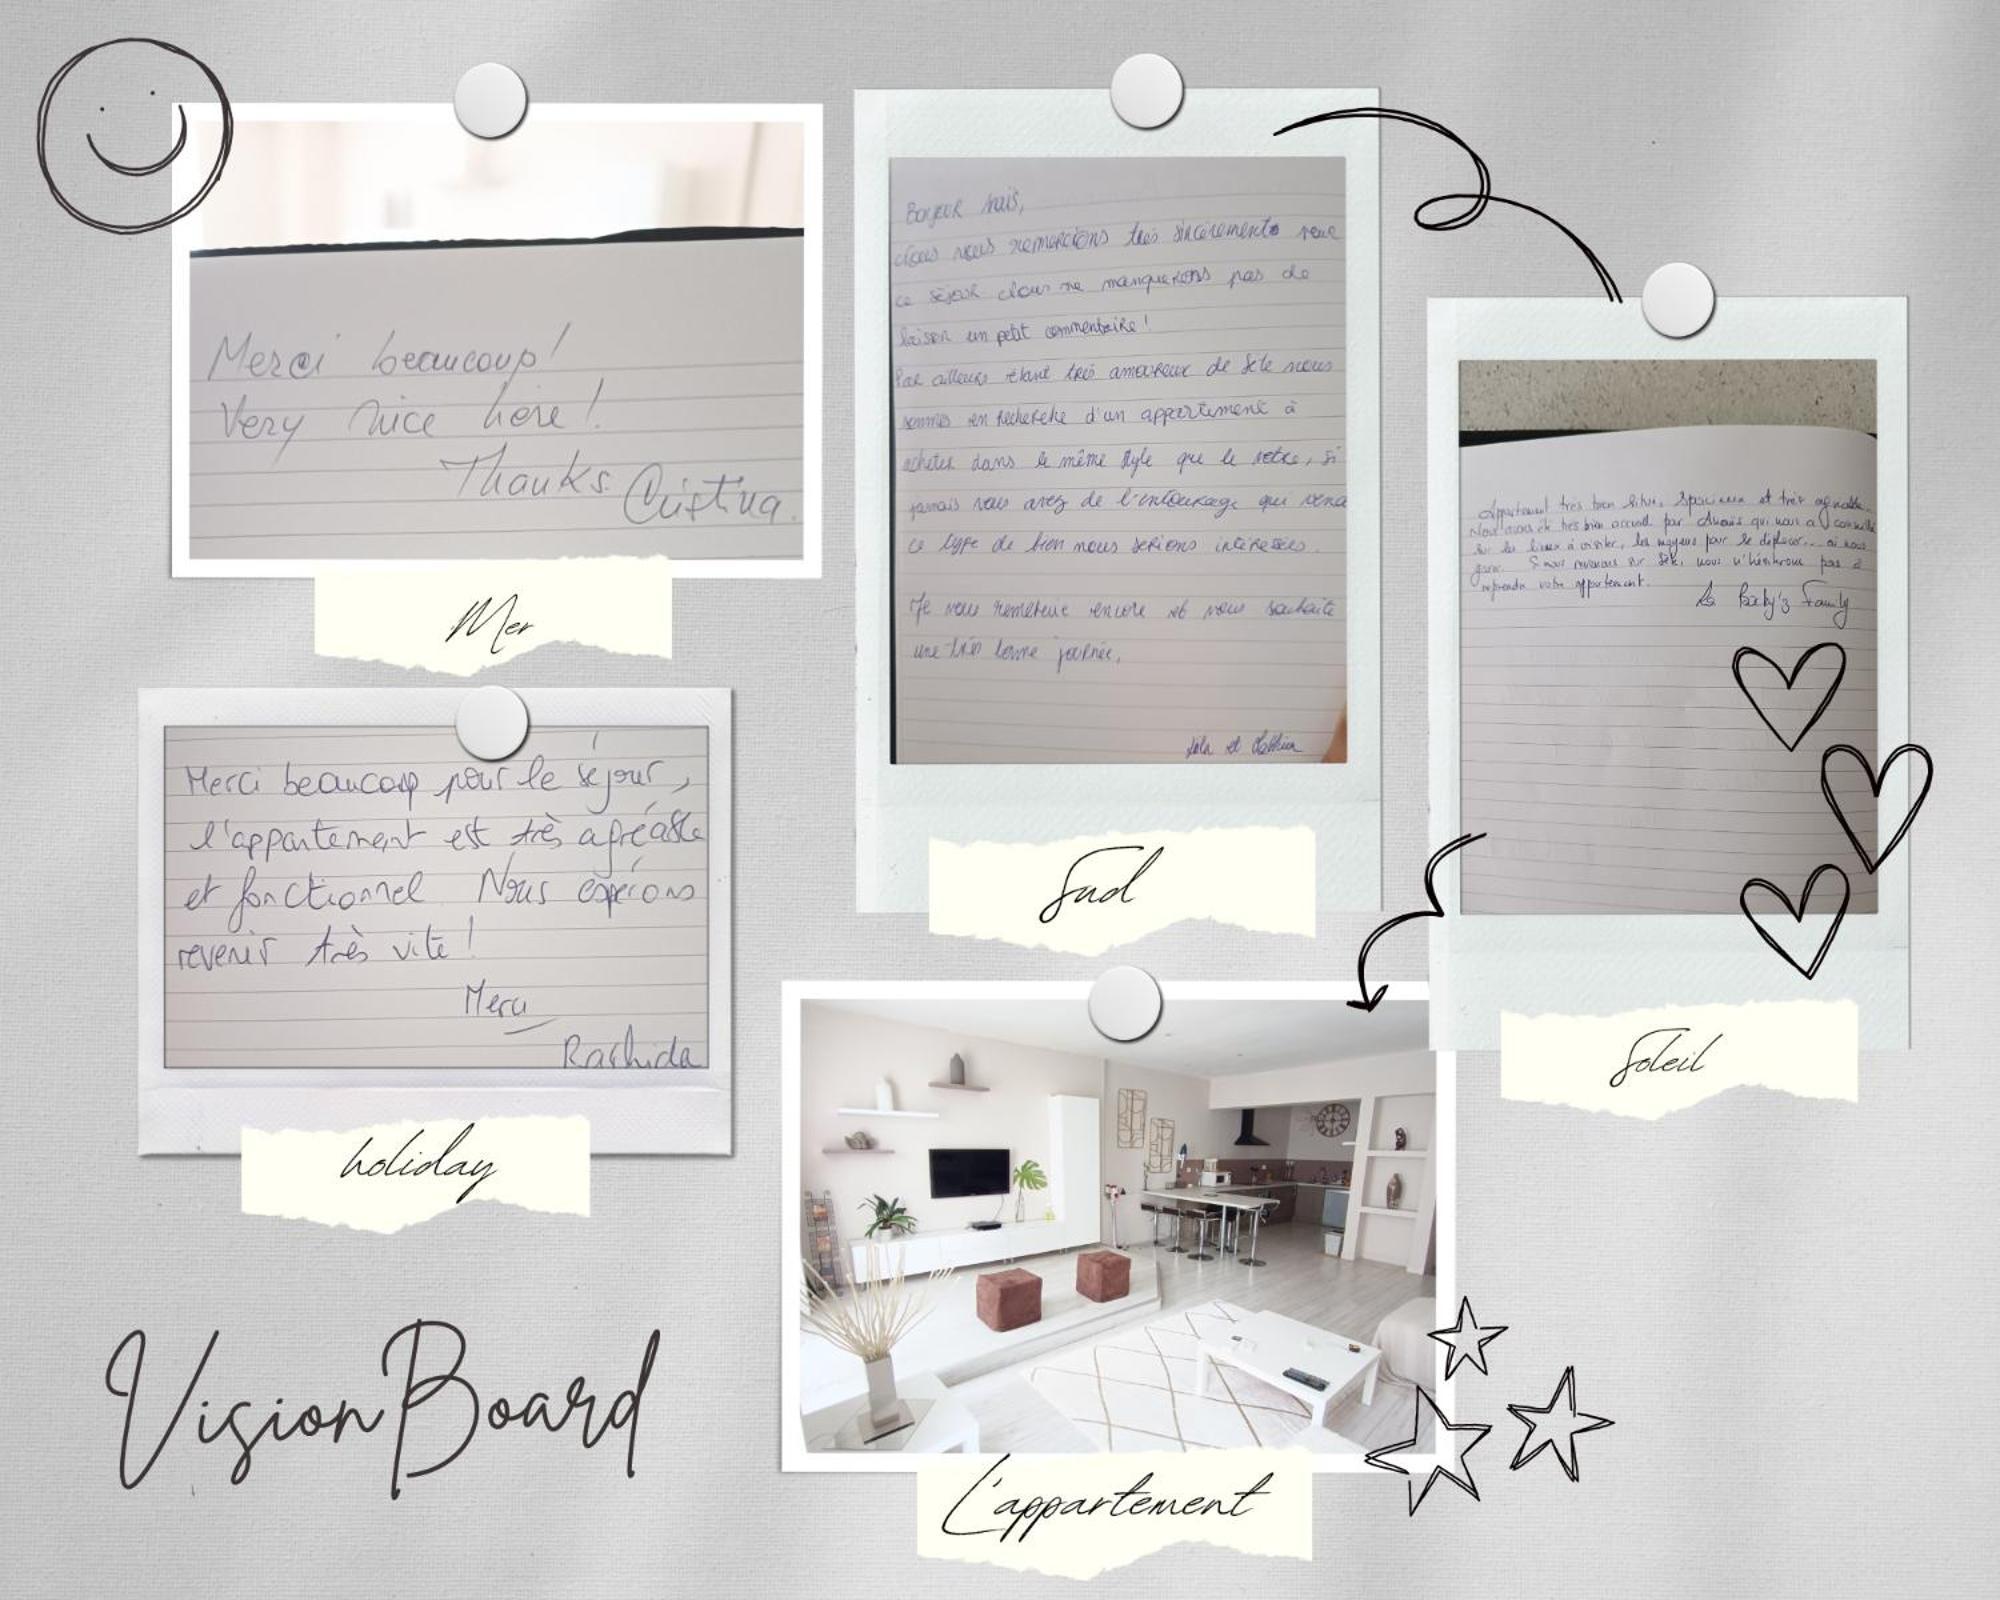 Merci beaucoup!
Very nice here!
Thanks. Cristina.
Mer
Merci beaucoup pour le séjour,
l'appartement est très agréable
et fonctionnel Nous espérons
revenir très vite !
Merci
Rachida
holiday
Bonjour Anaïs,
Nous vous remercions très sincèrement pour
ce séjour Nous ne manquerons pas de
laisser un petit commentaire !
Par ailleurs étant très amoureux de Sète nous
sommes en recherche d'un appartement à
acheter dans le même style que le votre, si
jamais vous avez de l'entourage qui vend
ce type de bien nous serions intéressés.
Je vous remercie encore et vous souhaite
une très bonne journée,
et
Sud
Appartement très bien situé, spacieux et très agréable.
Nous avons été très bien accueilli par Anaïs qui nous a conseillé
sur les lieux à visiter, les moyens pour se déplacer... où nous
garer. Si nous revenons sur Sète, nous n'hésiterons pas à
reprendre votre appartement.
La Family
Soleil
L'appartement
Vision Board